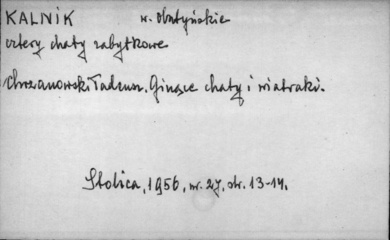 KALNIK w. olsztyńskie
cztery chaty zabytkowe
Chrzanowski Tadeusz. Ginące chaty i wiatraki.
Stolica, 1956, nr. 27, str. 13-14.